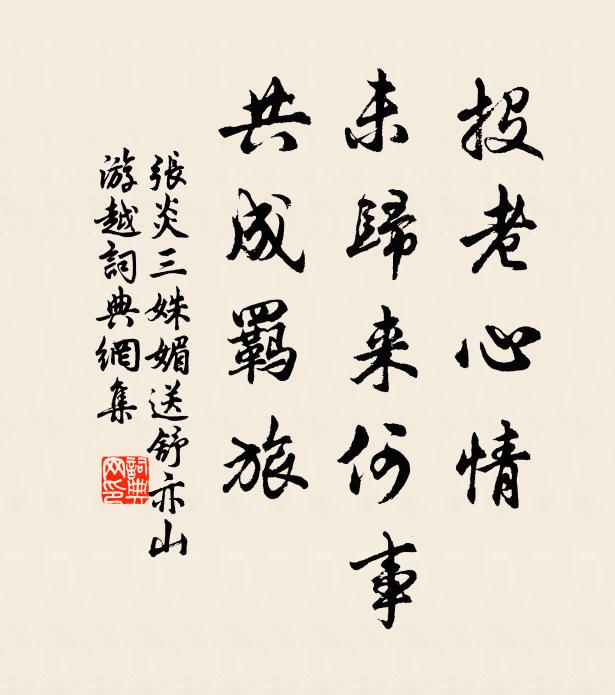 投老心情
未歸来何事
共成羈旅
張炎三姝媚送舒亦山
游越詞典網集
詞典
网印